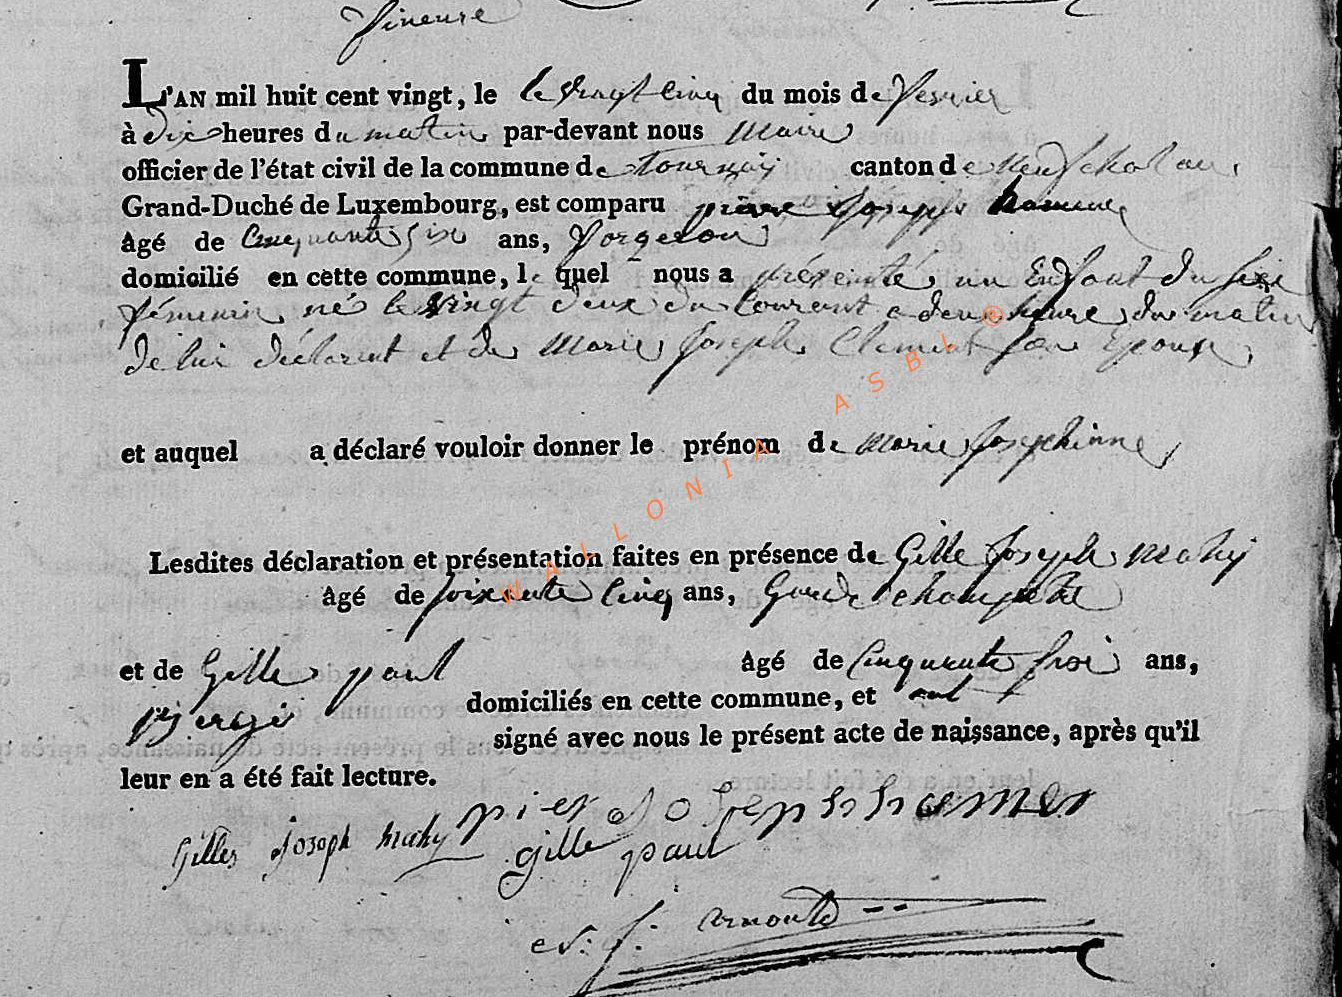 L'AN mil huit cent vingt, le le vingt cinq du mois de fevrier
à dix heures du matin par-devant nous Maire
officier de l'état civil de la commune de tournay canton de neufchateau
Grand-Duché de Luxembourg, est comparu pierre Joseph hamer
âgé de Cinquante six ans, forgeron
domicilié en cette commune, le quel nous a présenté un Enfant du sexe
féminin né le vingt deux du Courant a deux heure du matin
de lui déclarent et de Marie Joseph Clement son Epouse
et auquel a déclaré vouloir donner le prénom de Marie Josephinne
Lesdites déclaration et présentation faites en présence de Gille Joseph Mahy
âgé de soixente Cinq ans, Garde champetre
et de Gille paul âgé de Cinquante trois ans,
Bergé domiciliés en cette commune, et ont
signé avec nous le présent acte de naissance, après qu'il
leur en a été fait lecture.
pier Joseph hamer
Gilles Joseph Mahy gille paul
Arnould
WALLONIA ASBL ®